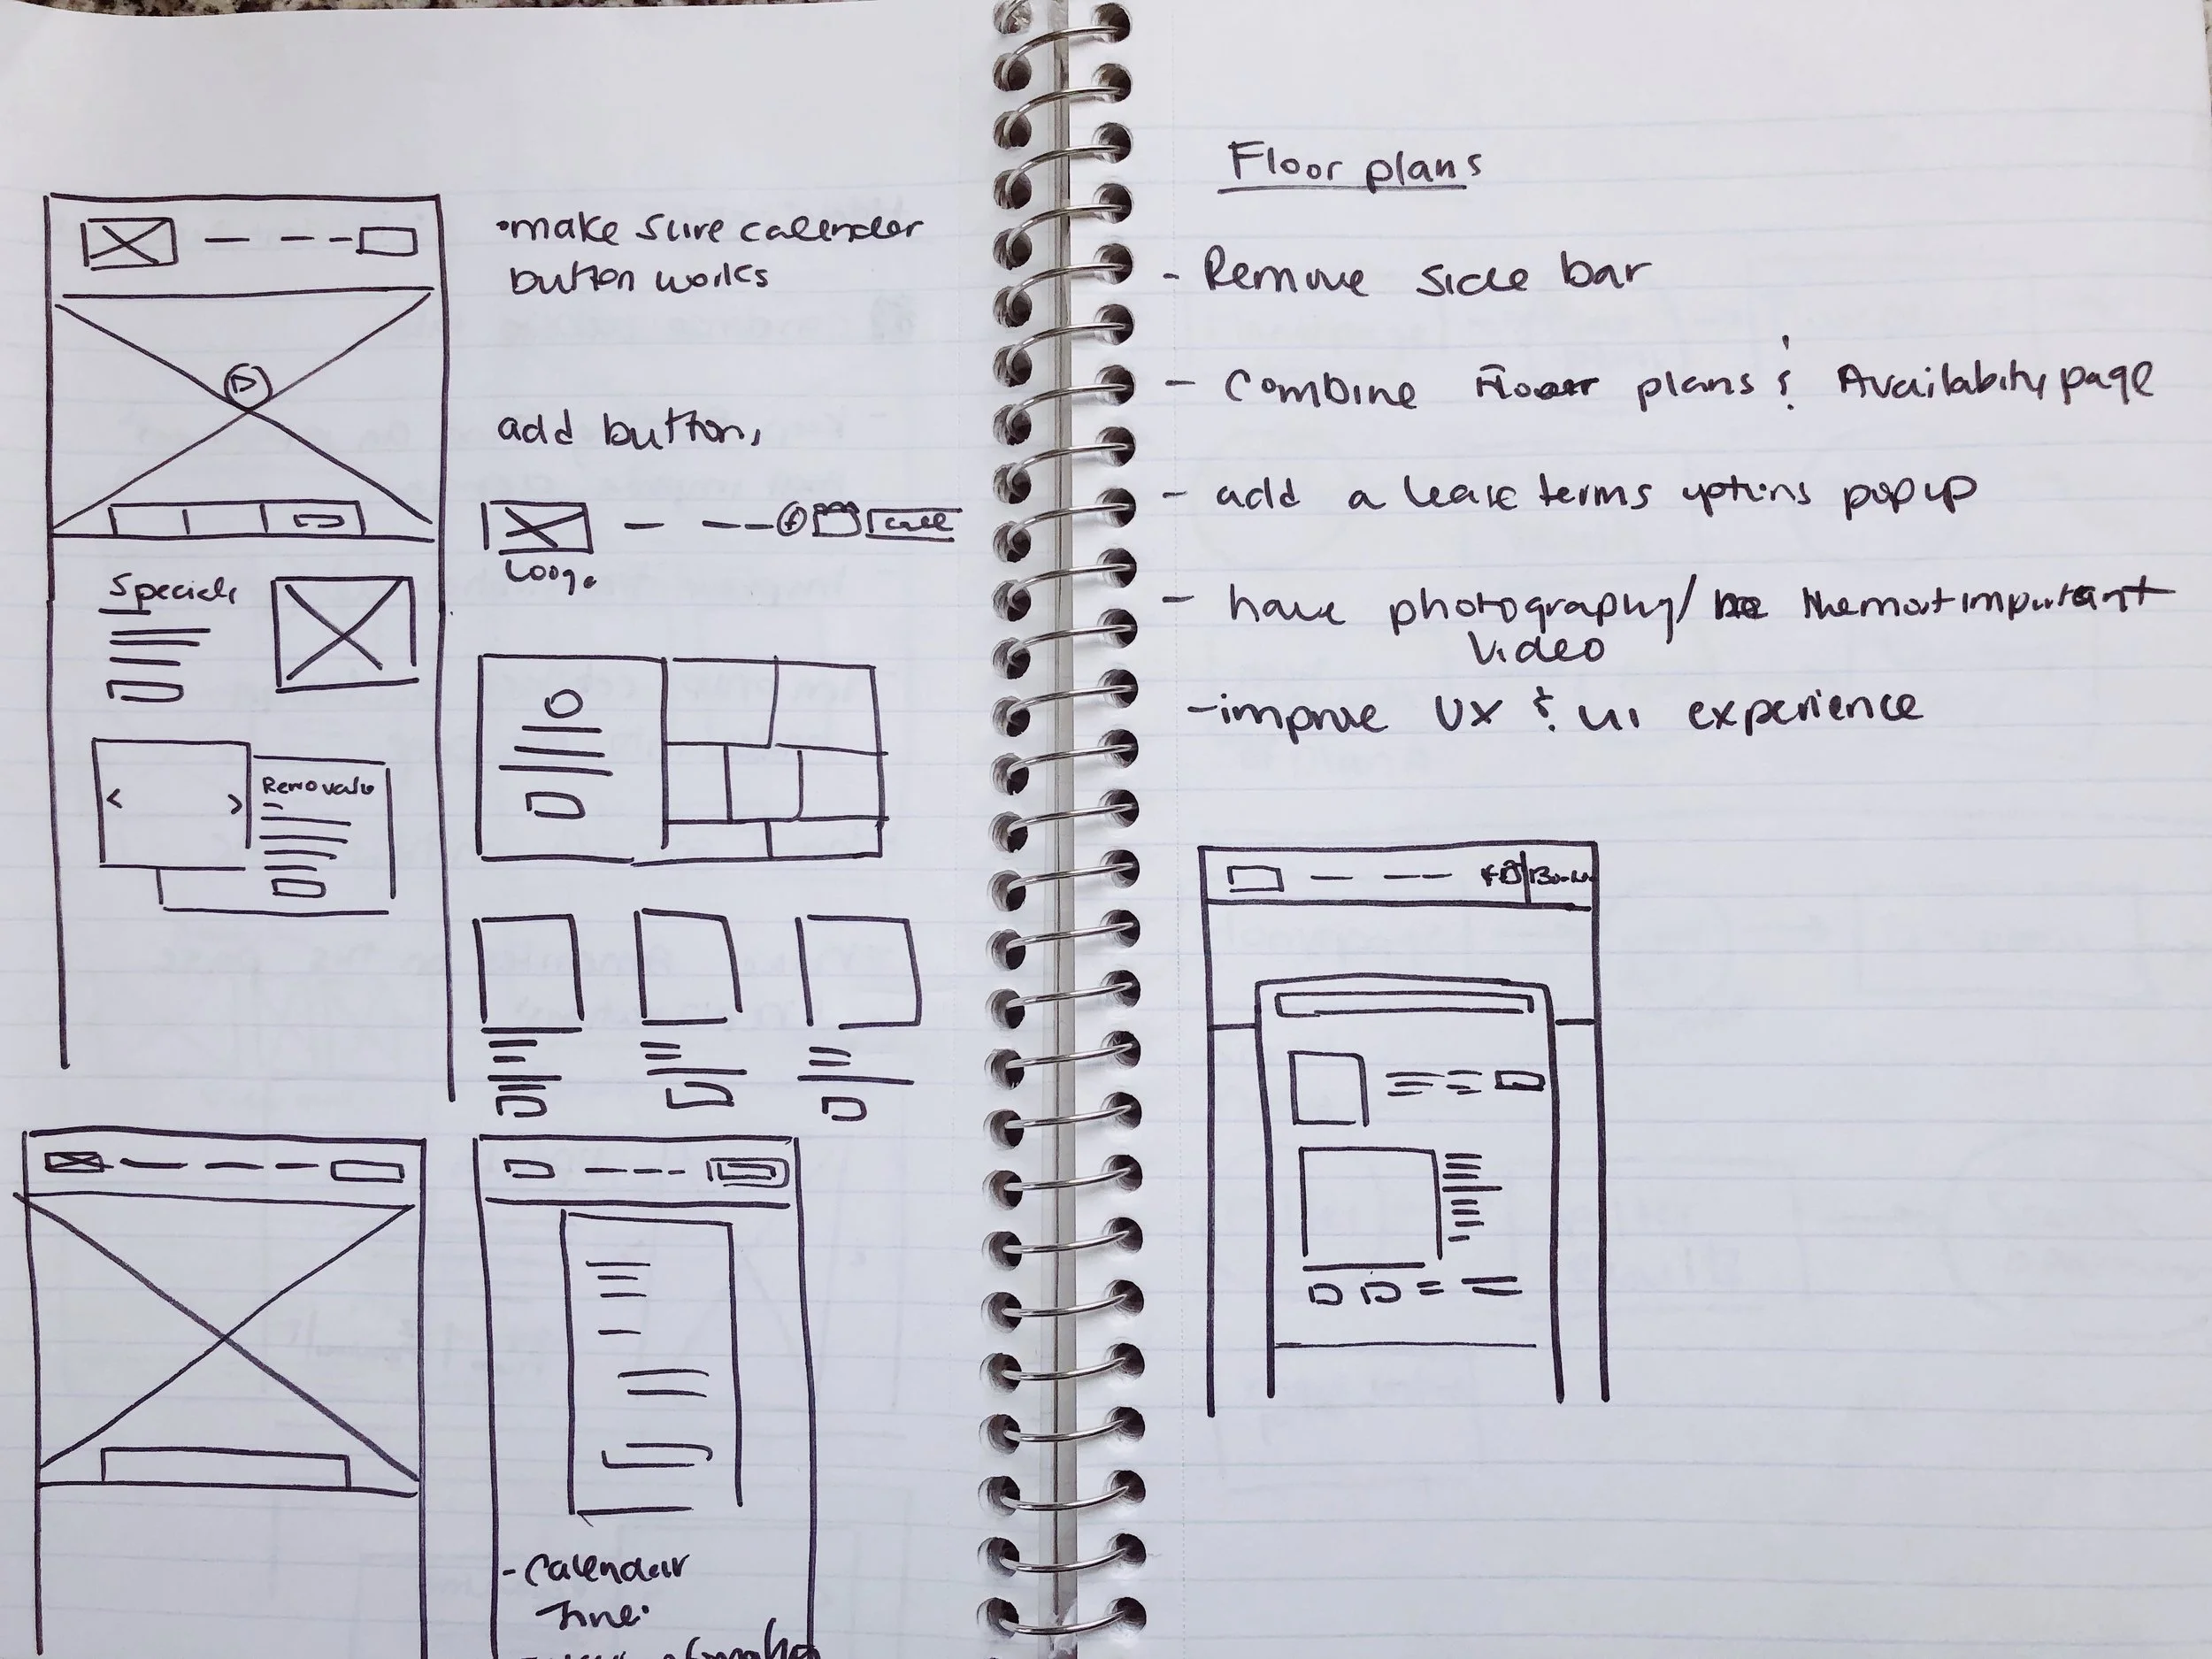 •make sure calender
button works
add button,
call
Logo
Specials
Renovate
- Calendar
Time.
Floor plans
- Remove side bar
- Combine Floor plans & Availability page
- add a lease terms options popup
- have photography/ the most important
Video
-improve UX & UI experience